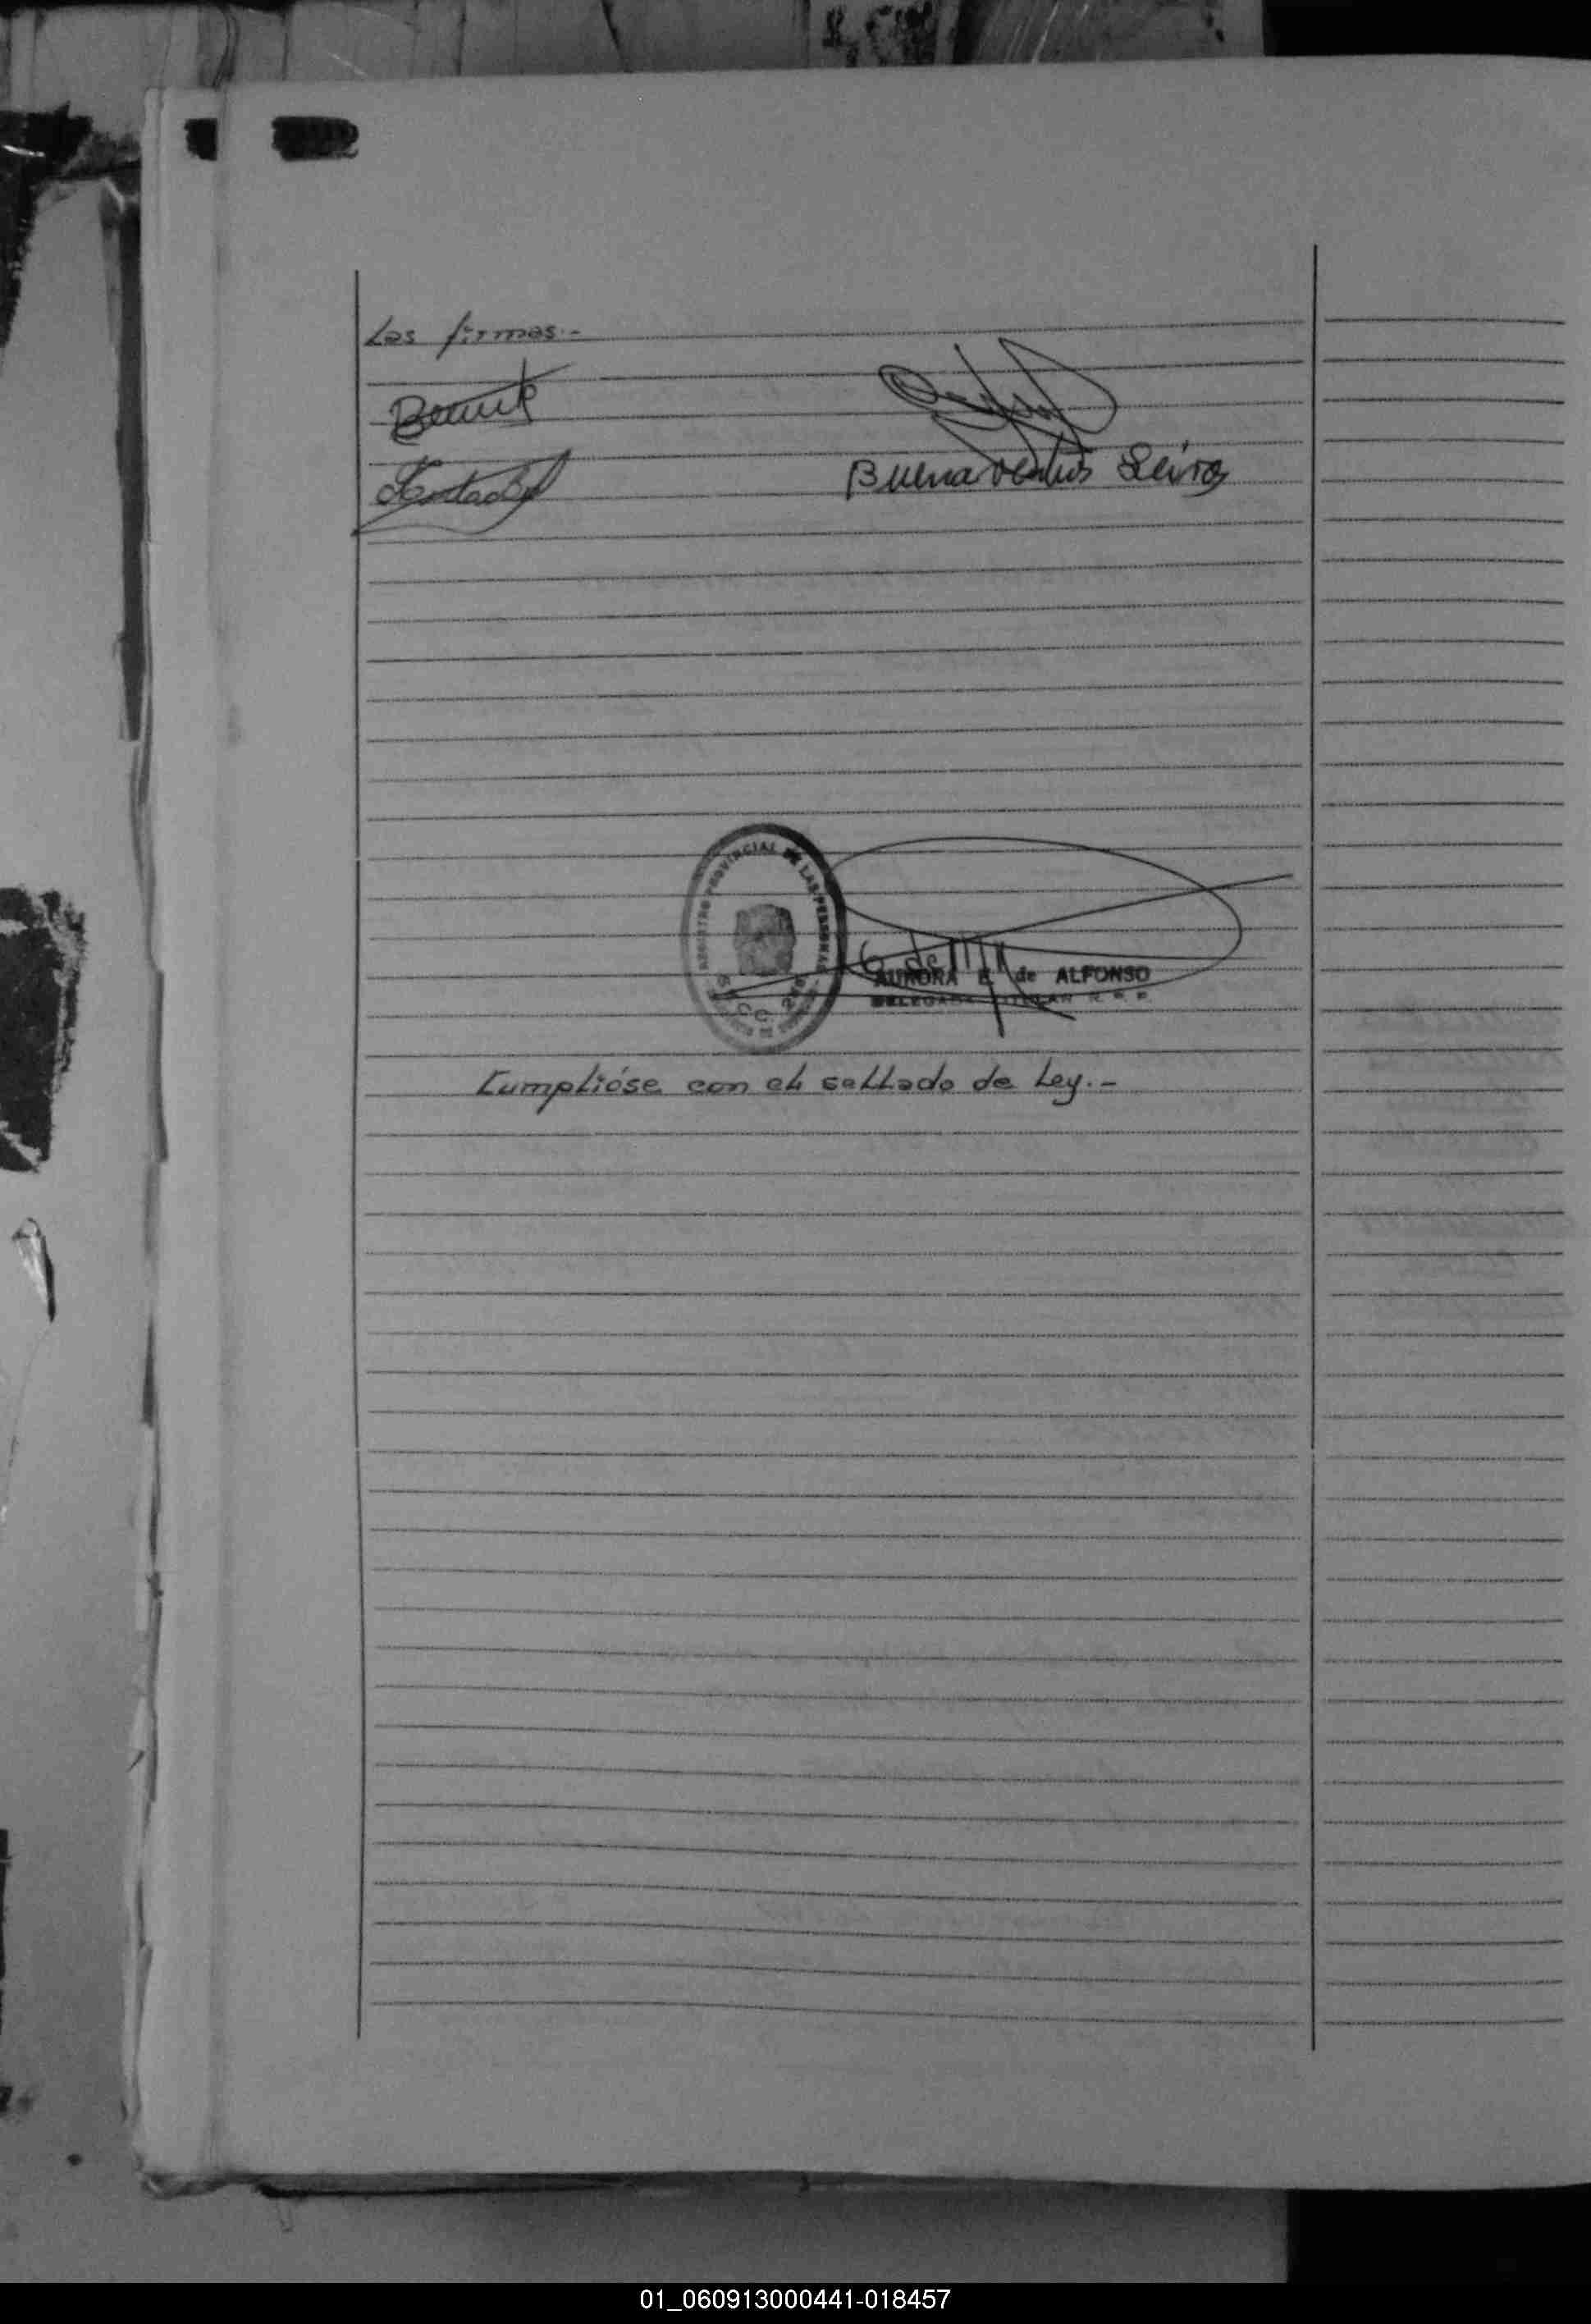 Las firmas.-
Buenaventura Leiva
REGISTRO PROVINCIAL DE LAS PERSONAS
SECC.
AURORA E. de ALFONSO
DELEGADA TITULAR R. P. P.
Cumplióse con el sellado de Ley.-
01_060913000441-018457